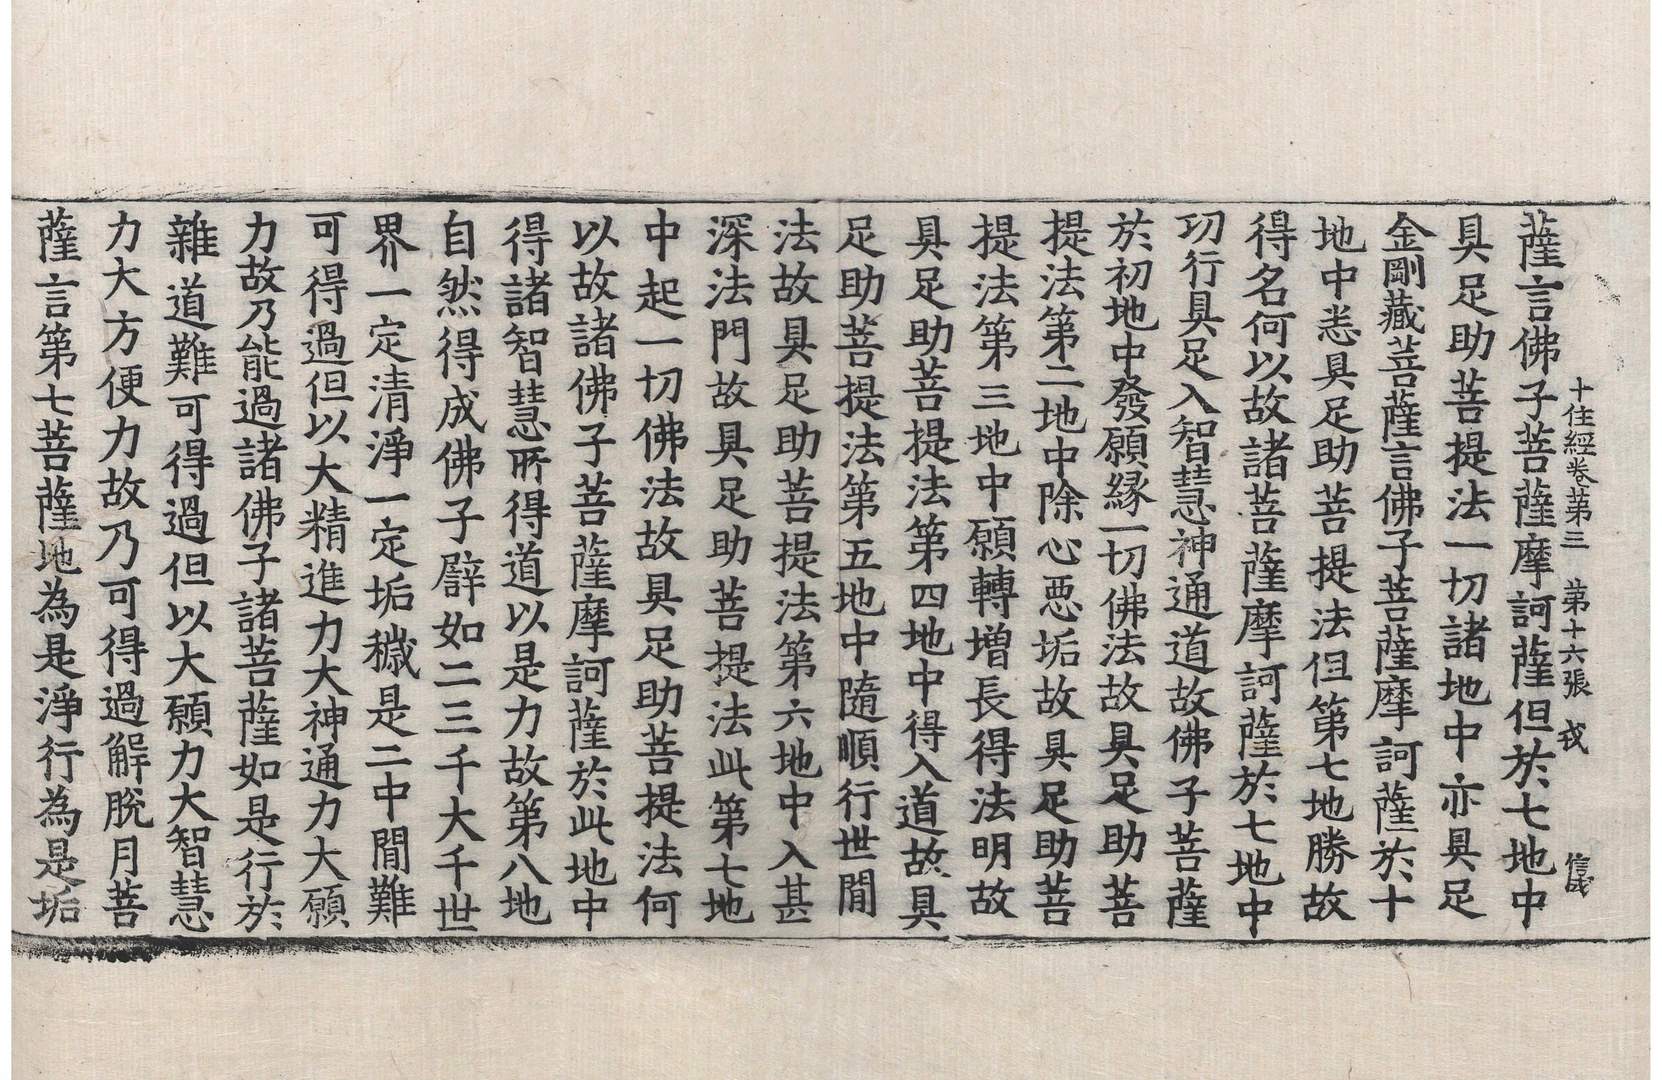 十住經卷第三　第十六張　戎
薩言佛子菩薩摩訶薩但於七地中
具足助菩提法一切諸地中亦具足
金剛藏菩薩言佛子菩薩摩訶薩於十
地中悉具足助菩提法但第七地勝故
得名何以故諸菩薩摩訶薩於七地中
功行具足入智慧神通道故佛子菩薩
於初地中發願緣一切佛法故具足助菩
提法第二地中除心惡垢故具足助菩
提法第三地中願轉增長得法明故
具足助菩提法第四地中得入道故具
足助菩提法第五地中隨順行世間
法故具足助菩提法第六地中入甚
深法門故具足助菩提法此第七地
中起一切佛法故具足助菩提法何
以故諸佛子菩薩摩訶薩於此地中
得諸智慧所得道以是力故第八地
自然得成佛子譬如二三千大千世
界一定清淨一定垢穢是二中間難
可得過但以大精進力大神通力大願
力故乃能過諸佛子諸菩薩如是行於
雜道難可得過但以大願力大智慧
力大方便力故乃可得過解脫月菩
薩言第七菩薩地為是淨行為是垢